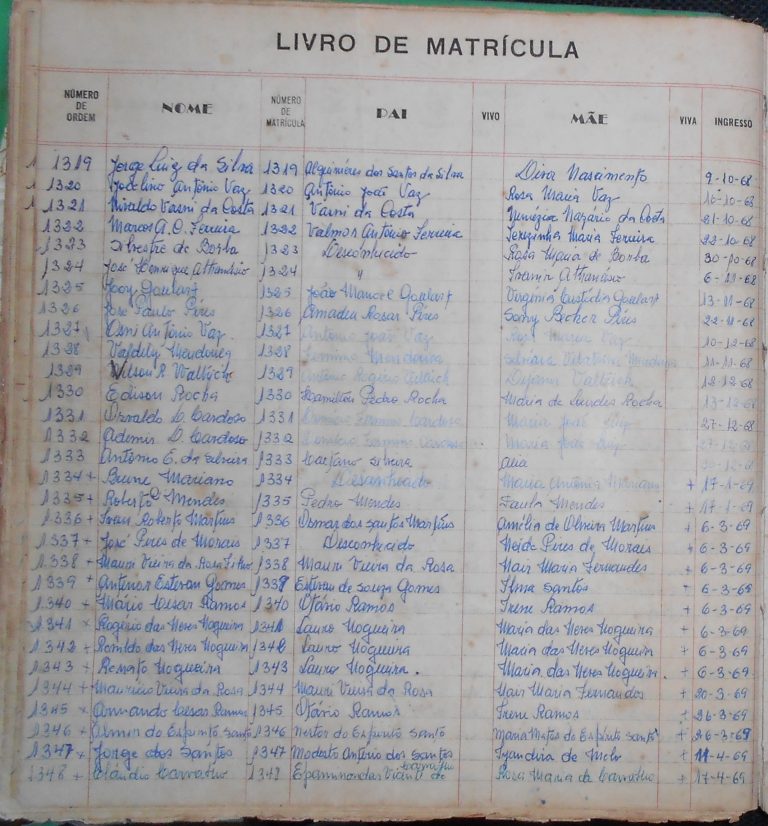 LIVRO DE MATRÍCULA
NÚMERO DE ORDEM NOME NÚMERO DE MATRÍCULA PAI VIVO MÃE VIVA INGRESSO
1319 Jorge Luiz da Silva 1319 dos Santos da Silva Diva Nascimento 9-10-68
1320 Jocelino Antônio Vaz 1320 Antônio João Vaz Rosa Maria Vaz 16-10-68
1321 Nivaldo Varni da Costa 1321 Varni da Costa Nazário da Costa 21-10-68
1322 Marcos A. C. Ferreira 1322 Valmor Antônio Ferreira Terezinha Maria Ferreira 22-10-68
1323 Silvestre de Borba 1323 Desconhecido Rosa Maria de Borba 30-10-68
1324 José Henrique Athanásio 1324 " Athanásio 6-11-68
1325 Goulart 1325 João Manoel Goulart Virgínia Custódia Goulart 13-11-68
1326 José Paulo Pires 1326 Amadeu Rosar Pires Sony Becker Pires 22-11-68
1327 Osni Antônio Vaz. 1327 Antonio João Vaz Rosa Maria Vaz 10-12-68
1328 Mendonça 1328 Mendonça 11-11-68
1329 Vilson R. 1329 Antônio Rogério 12-12-68
1330 Edison Rocha 1330 Hamilton Pedro Rocha Maria de Lourdes Rocha 13-12-68
1331 Osvaldo L. Cardoso 1331 Cardoso Maria José 27-12-68
1332 Ademir L. Cardoso 1332 Cardoso Maria José 27-12-68
1333 Antônio E. da Silveira 1333 Caetano Silveira Alia
1334 + Bruno Mariano 1334 Maria Antônia Mariano + 17-1-69
1335 + Roberto Mendes 1335 Pedro Mendes Paula Mendes + 17-1-69
1336 + Ivan Roberto Martins 1336 Osmar dos Santos Martins Amélia de Oliveira Martins + 6-3-69
1337 + José Pires de Morais 1337 Desconhecido Neide Pires de Morais + 6-3-69
1338 + Mauri Vieira da Rosa Filho 1338 Mauri Vieira da Rosa Nair Maria Fernandes + 6-3-69
1339 + Antenor Estevan Gomes 1339 Estevan de Souza Gomes Ilma Santos + 6-3-69
1340 + Mário Cesar Ramos 1340 Otávio Ramos Irene Ramos + 6-3-69
1341 x Rogério das Neves Nogueira 1341 Lauro Nogueira Maria das Neves Nogueira + 6-3-69
1342 + Ronildo das Neves Nogueira 1342 Lauro Nogueira Maria das Neves Nogueira + 6-3-69
1343 + Renato Nogueira 1343 Lauro Nogueira. Maria das Neves Nogueira. + 6-3-69
1344 + Maurício Vieira da Rosa 1344 Mauri Vieira da Rosa Nair Maria Fernandes + 20-3-69
1345 x Armando Cesar Ramos 1345 Otávio Ramos Irene Ramos + 26-3-69
1346 + do Espírito Santo 1346 Nestor do Espírito Santo Maria Matos do Espírito Santo + 26-3-69
1347 x Jorge dos Santos 1347 Modesto Antônio dos Santos Jandira de Melo + 11-4-69
1348 + Cláudio Carvalho 1348 Epaminondas Vieira de Carvalho Rosa Maria de Carvalho + 17-4-69